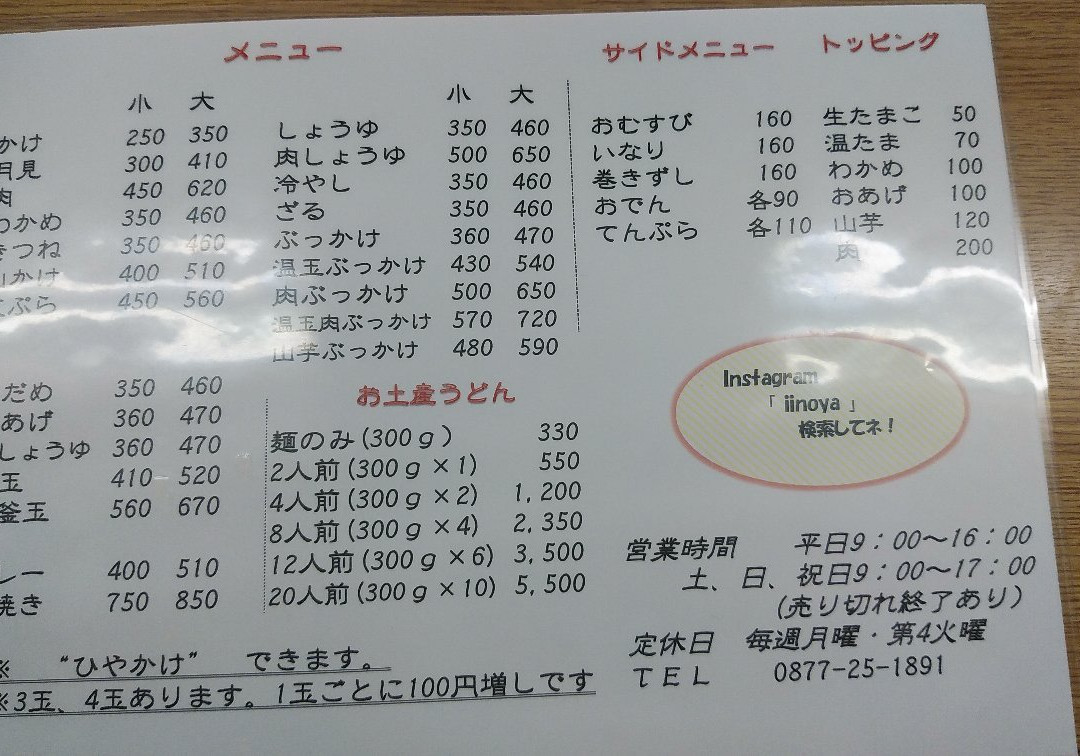 メニュー
小 大
かけ 250 350
月見 300 410
肉 450 620
わかめ 350 460
きつね 350 460
山かけ 400 510
てんぷら 450 560
だめ 350 460
あげ 360 470
しょうゆ 360 470
玉 410 520
釜玉 560 670
レー 400 510
焼き 750 850
小 大
しょうゆ 350 460
肉しょうゆ 500 650
冷やし 350 460
ざる 350 460
ぶっかけ 360 470
温玉ぶっかけ 430 540
肉ぶっかけ 500 650
温玉肉ぶっかけ 570 720
山芋ぶっかけ 480 590
お土産うどん
麺のみ(300g) 330
2人前(300g×1) 550
4人前(300g×2) 1,200
8人前(300g×4) 2,350
12人前(300g×6) 3,500
20人前(300g×10) 5,500
※ “ひやかけ” できます。
※3玉、4玉あります。1玉ごとに100円増しです
サイドメニュー
おむすび 160
いなり 160
巻きずし 160
おでん 各90
てんぷら 各110
トッピング
生たまご 50
温たま 70
わかめ 100
おあげ 100
山芋 120
肉 200
Instagram
「 iinoya 」
検索してネ!
営業時間 平日9:00～16:00
土、日、祝日9:00～17:00
(売り切れ終了あり)
定休日 毎週月曜・第4火曜
TEL 0877-25-1891